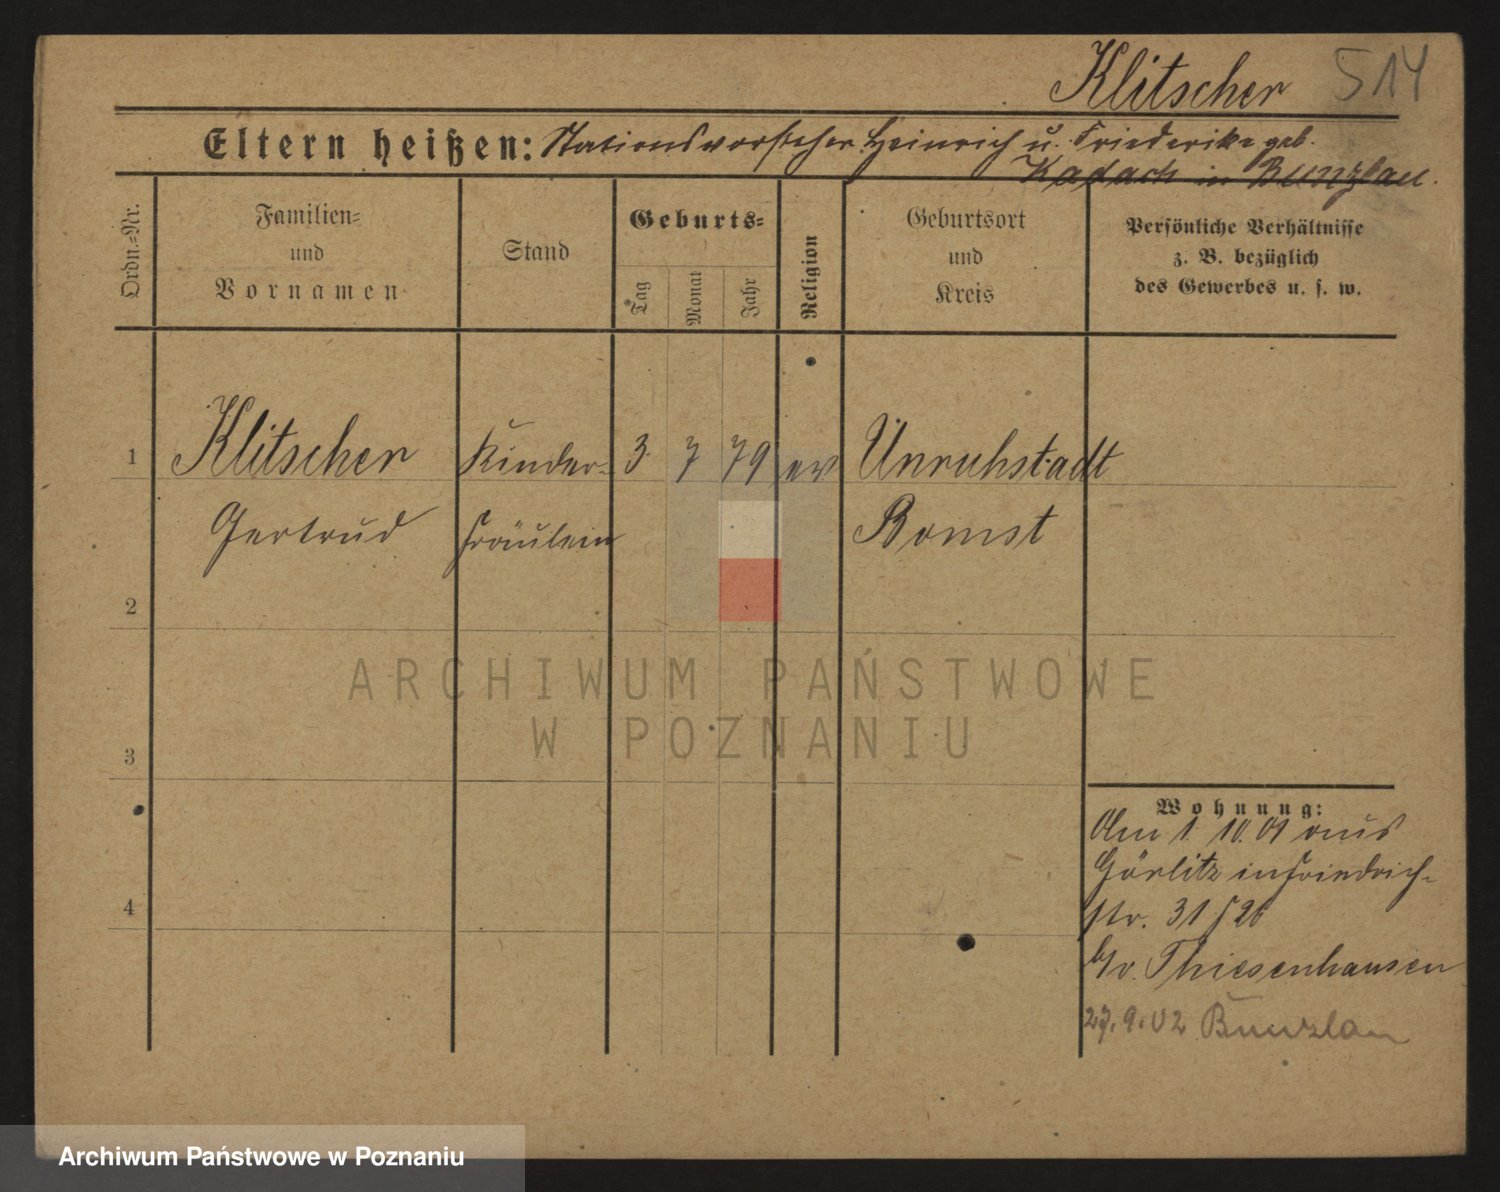 Klitscher 514
Eltern heißen: Stationsvorsteher Heinrich u. Friederike geb.
Kadach in Bunzlau.
Ordn.=Nr.
Familien=
und
Vornamen
Stand
Geburts=
Tag
Monat
Jahr
Religion
Geburtsort
und
Kreis
Persönliche Verhältnisse
z. B. bezüglich
des Gewerbes u. s. w.
1 Klitscher Kinder= 3 7 79 ev Unruhstadt
Gertrud Fräulein Bomst
2
3
4
Wohnung:
Am 1. 10. 01 aus
Görlitz in Friedrich=
str. 31
Thiesenhausen
27. 9. 02 Bunzlau
ARCHIWUM PAŃSTWOWE
W POZNANIU
Archiwum Państwowe w Poznaniu